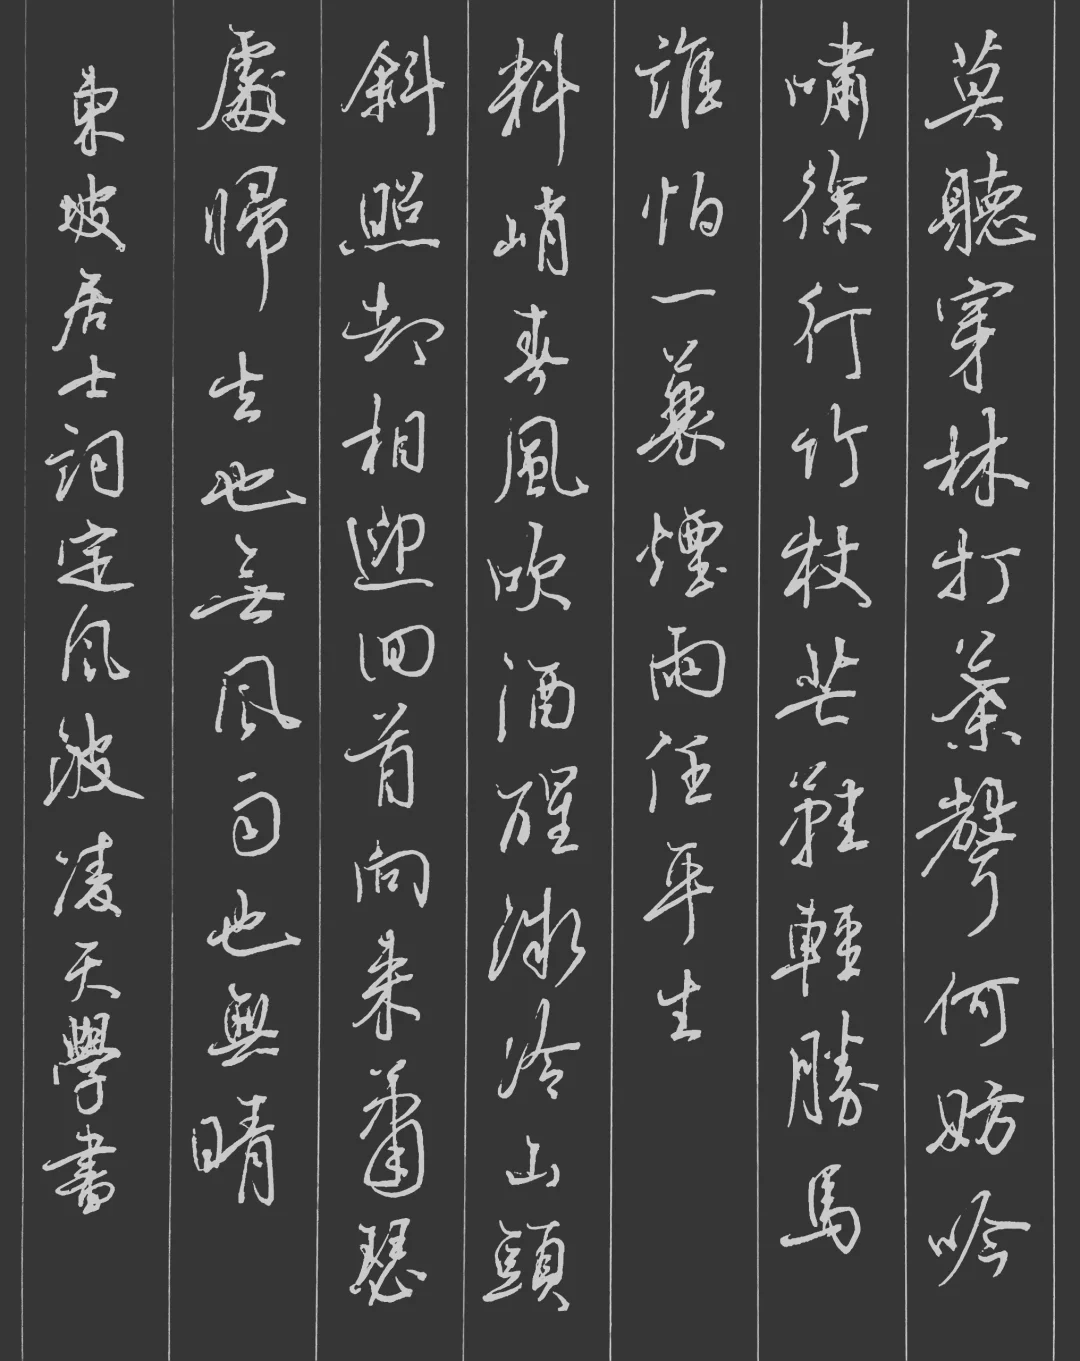 莫聽穿林打葉聲何妨吟
嘯徐行竹杖芒鞋輕勝馬
誰怕一蓑煙雨任平生
料峭春風吹酒醒微冷山頭
斜照却相迎回首向来蕭瑟
處歸去也無風雨也無晴
東坡居士詞定風波凌天學書